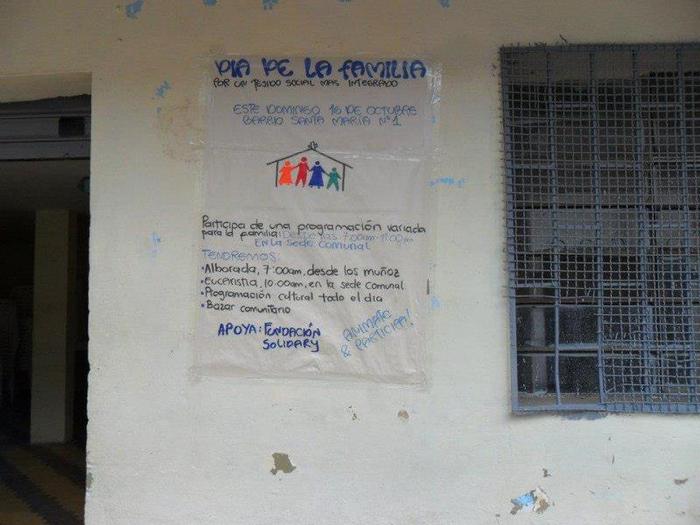 DIA DE LA FAMILIA
POR UN TEJIDO SOCIAL MAS INTEGRADO
ESTE DOMINGO 16 DE OCTUBRE
BARRIO SANTA MARÍA Nº1
Participa de una programación variada
para la familia! Desde las 7:00am-11:00m
En la sede comunal
TENDREMOS:
• Alborada, 7:00am, desde los muñoz
• Eucaristia, 10:00am, en la sede comunal
• Programación cultural todo el dia
• Bazar comunitario
APOYA: FUNDACIÓN
SOLIDARY
ANIMATE
& PARTICIPA!